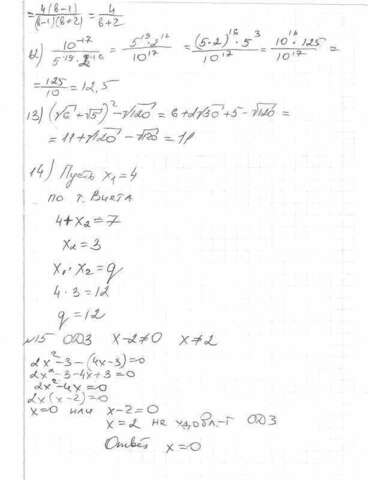 = 4(b-1) / (b-1)(b+2) = 4 / b+2
12) 10^-17 / 5^-19 · 2^-16 = 5^19 · 2^16 / 10^17 = (5·2)^16 · 5^3 / 10^17 = 10^16 · 125 / 10^17 =
= 125 / 10 = 12,5
13) (√6 + √5)^2 - √120 = 6 + 2√30 + 5 - √120 =
= 11 + √120 - √120 = 11
14) Пусть x₁ = 4
по т. Виета
4 + x₂ = 7
x₂ = 3
x₁ · x₂ = q
4 · 3 = 12
q = 12
№15 ОДЗ x-2≠0 x≠2
2x^2 - 3 - (4x-3) = 0
2x^2 - 3 - 4x + 3 = 0
2x^2 - 4x = 0
2x(x-2) = 0
x=0 или x-2=0
x=2 не удовл.-т ОДЗ
Ответ x=0